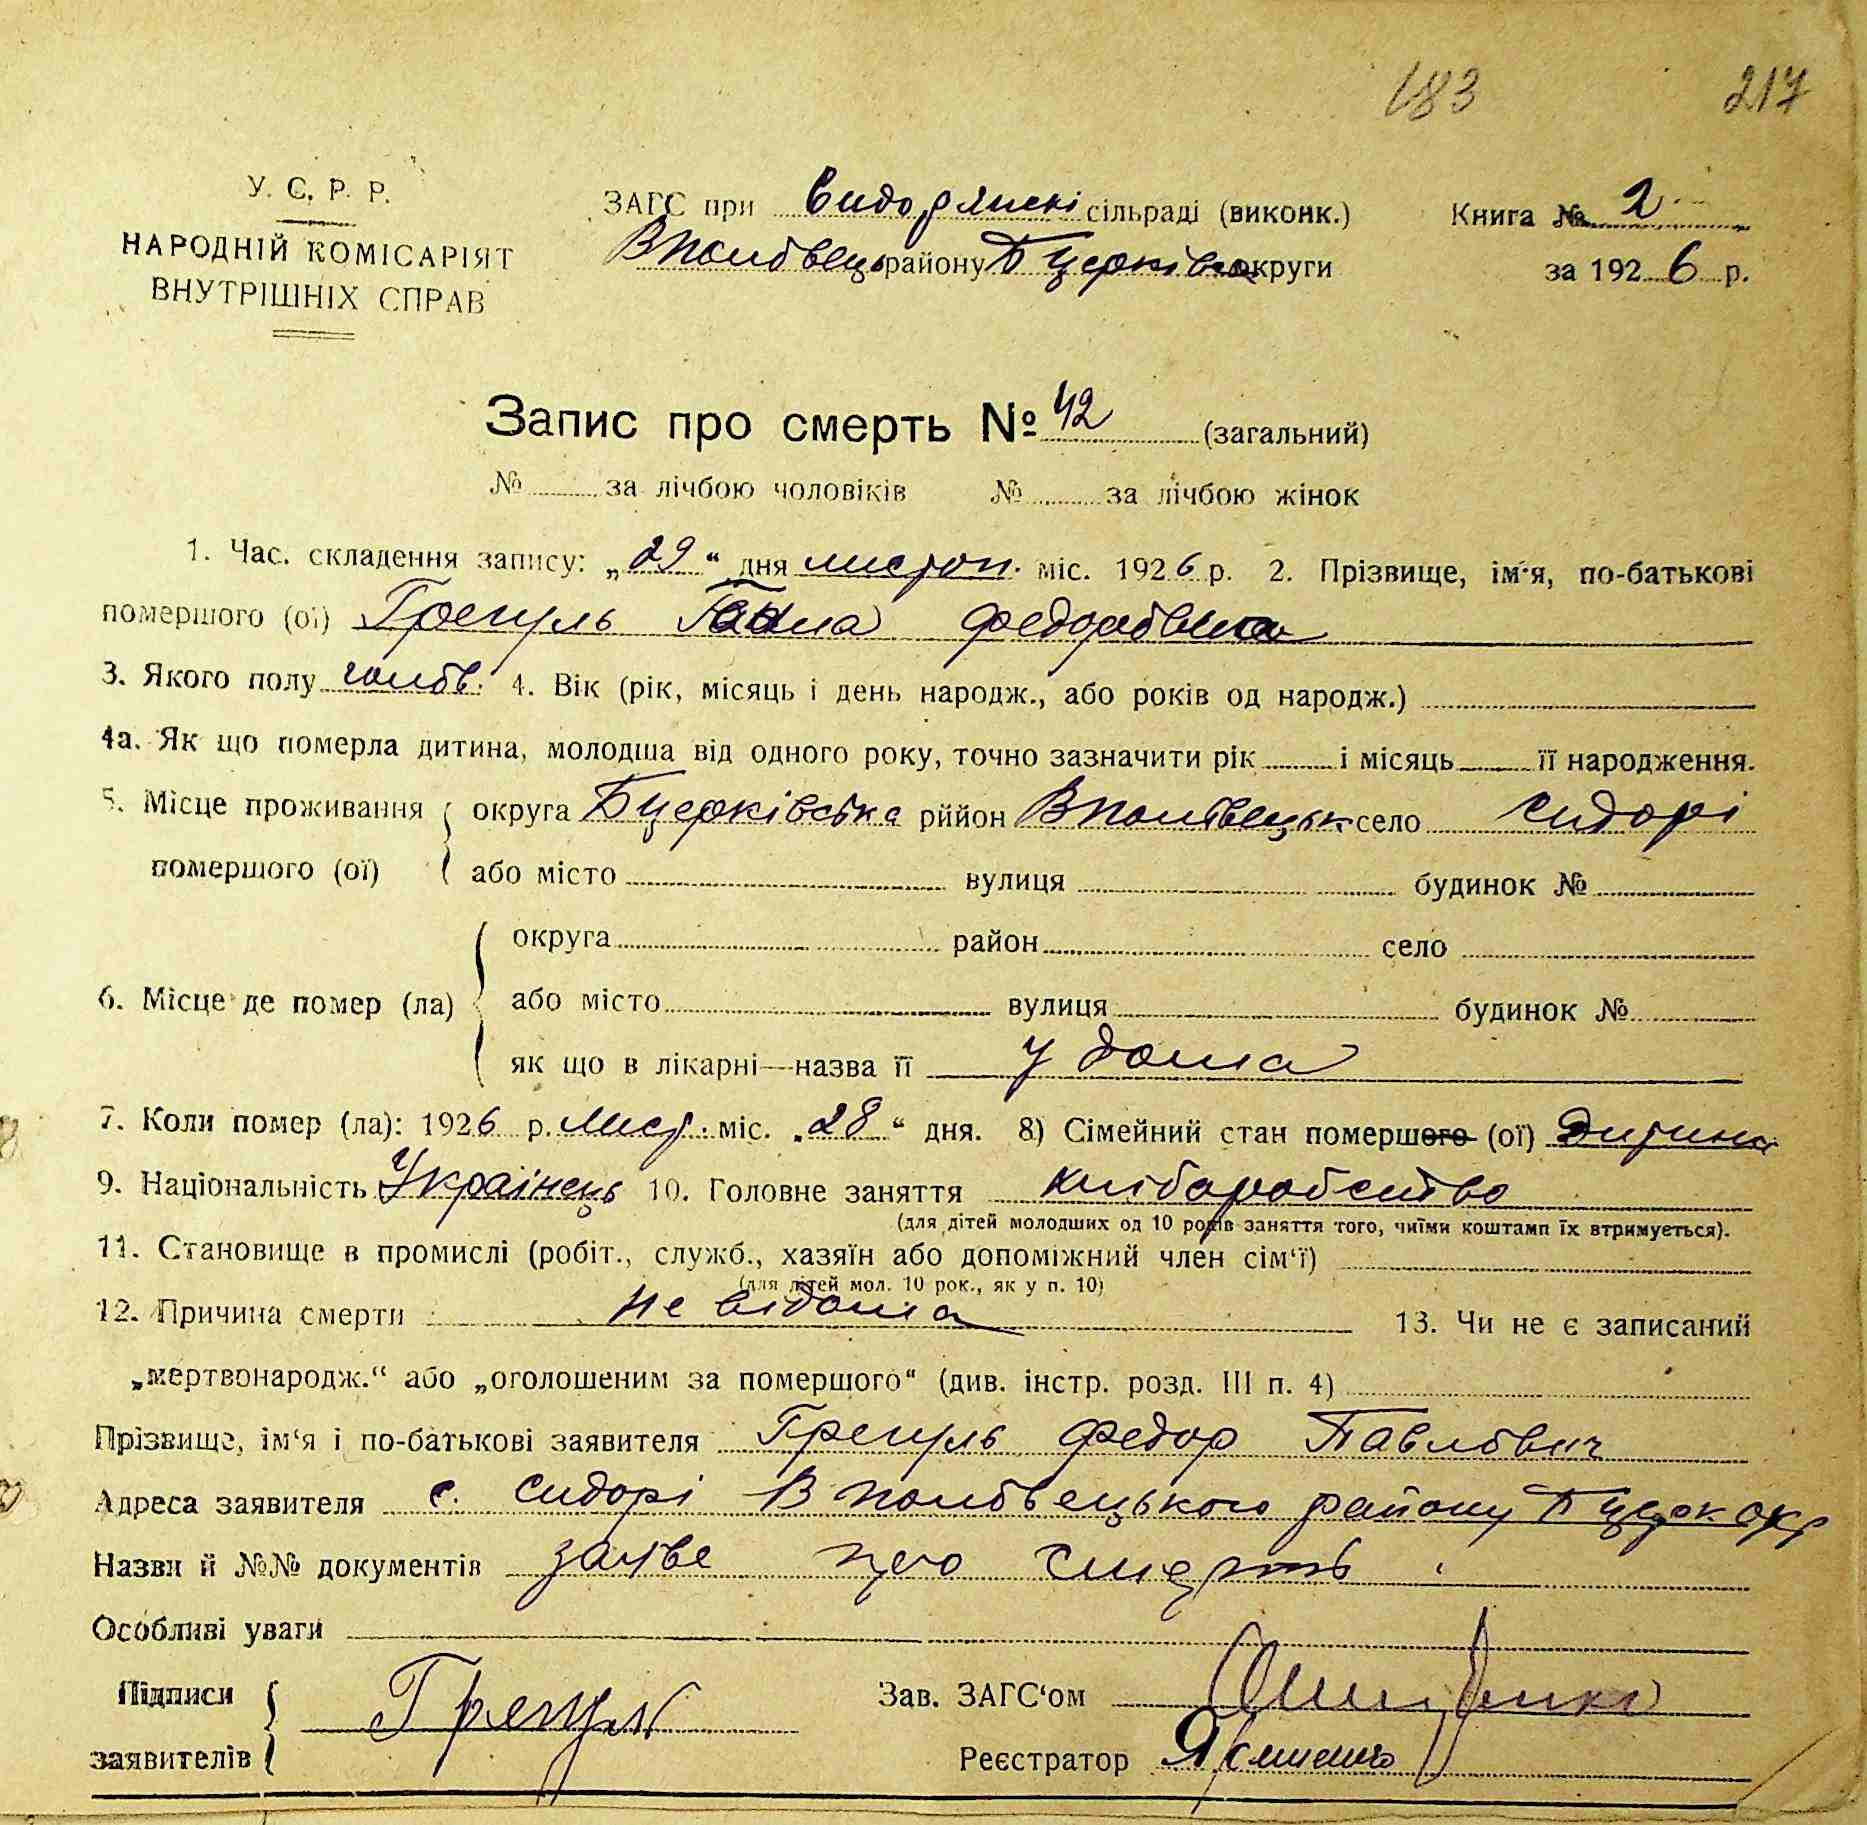 183 217
У. С. Р. Р.
НАРОДНІЙ КОМІСАРІЯТ
ВНУТРІШНІХ СПРАВ
ЗАГС при Сидорянскі сільраді (виконк.) Книга № 2
Вполовець району Бцерківськ округи за 1926 р.
Запис про смерть № 42 (загальний)
№ за лічбою чоловіків № за лічбою жінок
1. Час. складення запису: „29“ дня листоп. міс. 1926 р. 2. Прізвище, ім'я, по-батькові
помершого (ої) Грегуль Ганна Федоровна
3. Якого полу чолов. 4. Вік (рік, місяць і день народж., або років од народж.)
4а. Як що померла дитина, молодша від одного року, точно зазначити рік і місяць її народження.
5. Місце проживання округа Бцерківська рййон Вполовецьк село Сидорі
помершого (ої) або місто вулиця будинок №
округа район село
6. Місце де помер (ла) або місто вулиця будинок №
як що в лікарні—назва її у дома
7. Коли помер (ла): 1926 р. Лист. міс. „28“ дня. 8) Сімейний стан помершого (ої) дитина
9. Національність Українець 10. Головне заняття хліборобство
(для дітей молодших од 10 років заняття того, чиїми коштамп їх втримується).
11. Становище в промислі (робіт., служб., хазяїн або допоміжний член сім'ї)
(для дітей мол. 10 рок., як у п. 10)
12. Причина смерти не відома 13. Чи не є записаний
„мертвонародж.“ або „оголошеним за помершого“ (див. інстр. розд. III п. 4)
Прізвище, ім'я і по-батькові заявителя Грегуль Федор Павлович
Адреса заявителя с. Сидорі Вполовецького району Бцерк окр
Назви й №№ документів заяве про смерть
Особливі уваги
Підписи Грегуль Зав. ЗАГС'ом
заявителів Реєстратор